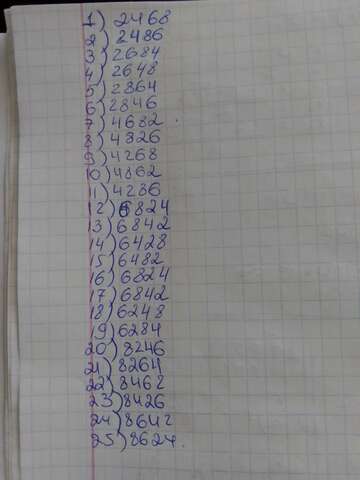 1) 2468
2) 2486
3) 2684
4) 2648
5) 2864
6) 2846
7) 4682
8) 4826
9) 4268
10) 4862
11) 4286
12) 6824
13) 6842
14) 6428
15) 6482
16) 6824
17) 6842
18) 6248
19) 6284
20) 8246
21) 8264
22) 8462
23) 8426
24) 8642
25) 8624.